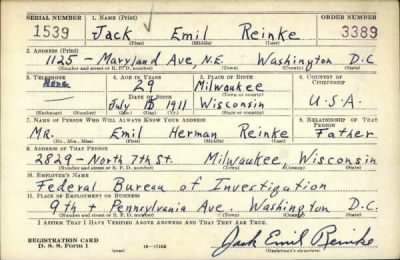 SERIAL NUMBER 1. NAME (Print) ORDER NUMBER
1539 Jack Emil Reinke 3389
(First) (Middle) (Last)
2. ADDRESS (Print)
1125 - Maryland Ave, N.E. Washington D.C
(Number and street or R. F. D. number) (Town) (County) (State)
3. TELEPHONE 4. AGE IN YEARS 5. PLACE OF BIRTH 6. COUNTRY OF CITIZENSHIP
None 29 Milwaukee
DATE OF BIRTH (Town or county)
July 1911 Wisconsin U.S.A.
(Exchange) (Number) (Mo.) (Day) (Yr.) (State or country)
7. NAME OF PERSON WHO WILL ALWAYS KNOW YOUR ADDRESS 8. RELATIONSHIP OF THAT PERSON
Mr. Emil Herman Reinke Father
(Mr., Mrs., Miss) (First) (Middle) (Last)
9. ADDRESS OF THAT PERSON
2829 - North 7th St. Milwaukee, Wisconsin
(Number and street or R. F. D. number) (Town) (County) (State)
10. EMPLOYER'S NAME
Federal Bureau of Investigation
11. PLACE OF EMPLOYMENT OR BUSINESS
9th + Pennsylvania Ave. Washington D.C.
(Number and street or R. F. D. number) (Town) (County) (State)
I AFFIRM THAT I HAVE VERIFIED ABOVE ANSWERS AND THAT THEY ARE TRUE.
REGISTRATION CARD
D. S. S. Form 1 Jack Emil Reinke